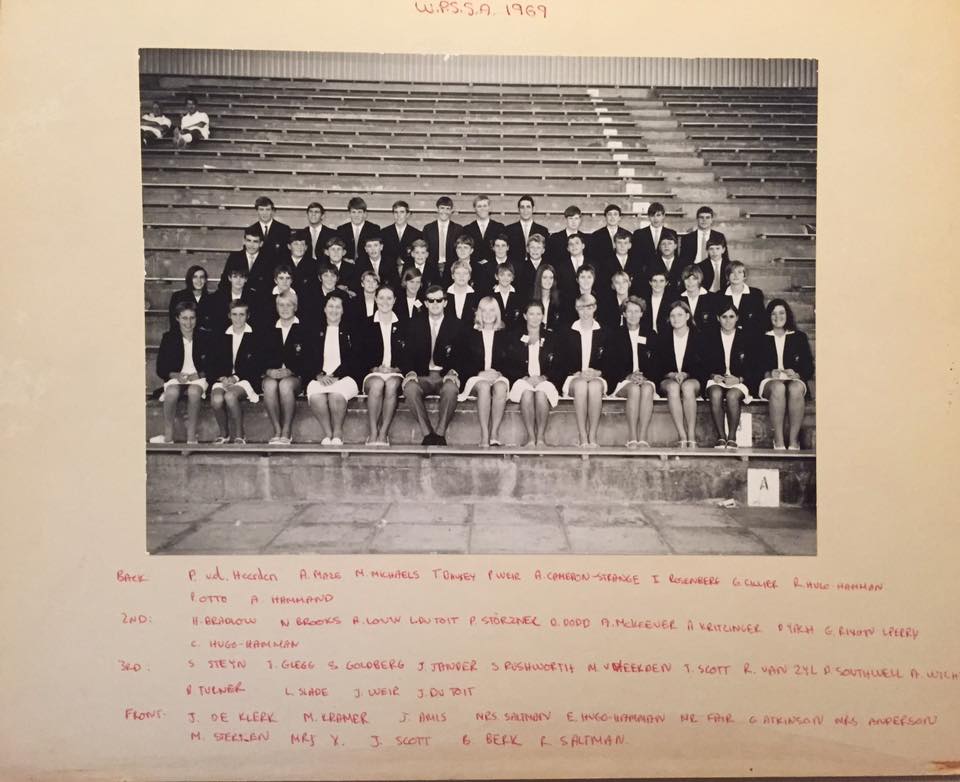 W.P.S.S.A. 1969
A
BACK P. v.d. Heerden A. MAZE M. MICHAELS T DAVEY P WEIR A. CAMERON-STRANGE I ROSENBERG G. CILLIER R. HUGO-HAMMAN
P. OTTO A. HAMMAND
2ND: H. BRADLOW N BROOKS A. LOUW L. DU TOIT P. STÖRZNER D. DODD A. McKEEVER A KRITZINGER D YACH G. L PERRY
C. HUGO-HAMMAN
3RD: S STEYN J. GLEGG S. GOLDBERG J. JANDER S RUSHWORTH M. T. SCOTT R. VAN ZYL D. SOUTHWELL A. WICH
D TURNER L. SLADE J. WEIR J. DU TOIT
FRONT- J. DE KLERK M. KRAMER J. AMIS MRS. SALTMAN E. HUGO-HAMMAN MR FAIR G ATKINSON MRS ANDERSON
M. MRS X. J. SCOTT B BERK R. SALTMAN.